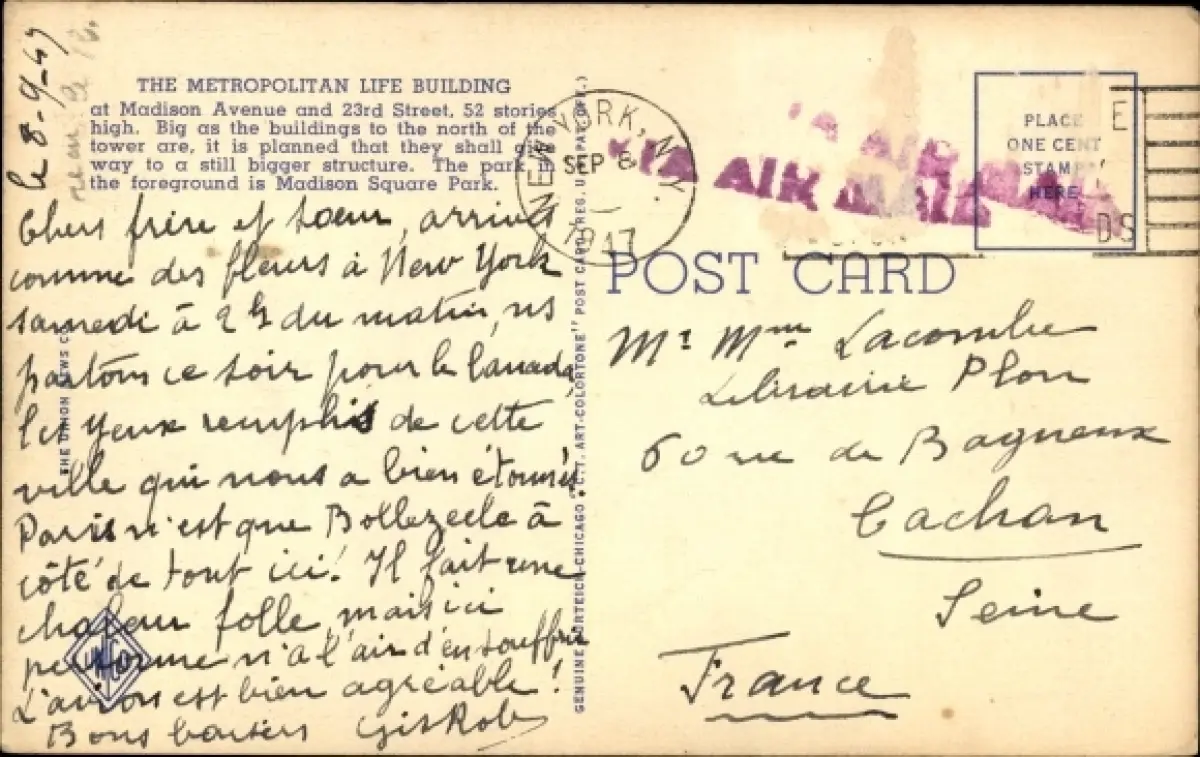 le 8-9-47
THE METROPOLITAN LIFE BUILDING
at Madison Avenue and 23rd Street, 52 stories
high. Big as the buildings to the north of the
tower are, it is planned that they shall give
way to a still bigger structure. The park in
the foreground is Madison Square Park.
Chers frère et soeur, arrivés
comme des fleurs à New York
samedi à 2h du matin, ns
partons ce soir pour le Canada,
les yeux remplis de cette
ville qui nous a bien étonnés
Paris n'est que Bollezeele à
côté de tout ici! Il fait une
chaleur folle, mais ici
personne n'a l'air d'en souffrir
L'avion est bien agréable!
Bons baisers Git Rob
THE UNION NEWS CO.
GENUINE CURTEICH-CHICAGO "C.T. ART-COLORTONE" POST CARD (REG. U.S. PAT. OFF.)
NEW YORK, N.Y.
SEP 8
1947
VIA AIR MAIL
PLACE
ONE CENT
STAMP
HERE
E
DS
POST CARD
Mr Mme Lacombe
Librairie Plon
60 rue de Bagneux
Cachan
Seine
France